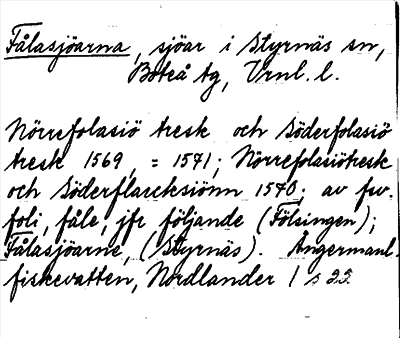 Fålasjöarna, sjöar i Styrnäs sn,
Boteå tg, Vrnl. l.
Nörrefolasiö tresk och Söderfolasiö
tresk 1569, = 1571; Nörrefolasiötresk
och Söderflarcksiönn 1570; av fsv.
foli, fåle, jfr följande (Fölsingen);
Fålasjöarne, (Styrnäs). Ångermanl.
fiskevatten, Nordlander 1 s 22.